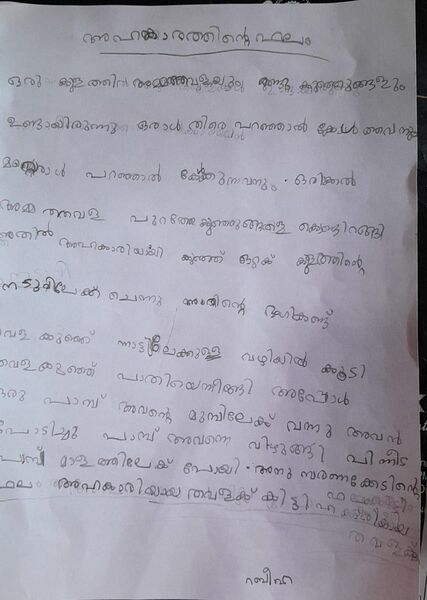 അഹങ്കാരത്തിന്റെ ഫലം
ഒരു കുളത്തിൽ അമ്മത്തവളയും രണ്ടു കുഞ്ഞുങ്ങളും
ഉണ്ടായിരുന്നു ഒരാൾ തീരെ പറഞ്ഞാൽ
മറ്റൊരാൾ പറഞ്ഞാൽ കേൾക്കുന്നവനും. ഒരിക്കൽ
അമ്മ തവള പുറത്തേ കുഞ്ഞുങ്ങളെ
അതിൽ അഹങ്കാരിയായി കുഞ്ഞ് ഒറ്റക്ക് കുളത്തിന്റെ
നടുവിലേക്ക് ചെന്നു അതിന്റെ ഭംഗികണ്ട്
വള കുഞ്ഞ് നാട്ടിലേക്കുള്ള വഴിയിൽ കൂടി
വളകുഞ്ഞ് പാതിയെന്നീങ്ങി അപ്പോൾ
ഒരു പാമ്പ് അവന്റെ മുമ്പിലേക്ക് വന്നു അവൻ
പേടിച്ചു പാമ്പ് അവനെ വിഴുങ്ങി പിന്നീട
പാമ്പ് മാളത്തിലേക് പോയി. അനുസരണക്കേടിന്റെ
ഫലം അഹങ്കാരിയായ തവളക്ക് കിട്ടി
തവളക്ക്
റബീഹ